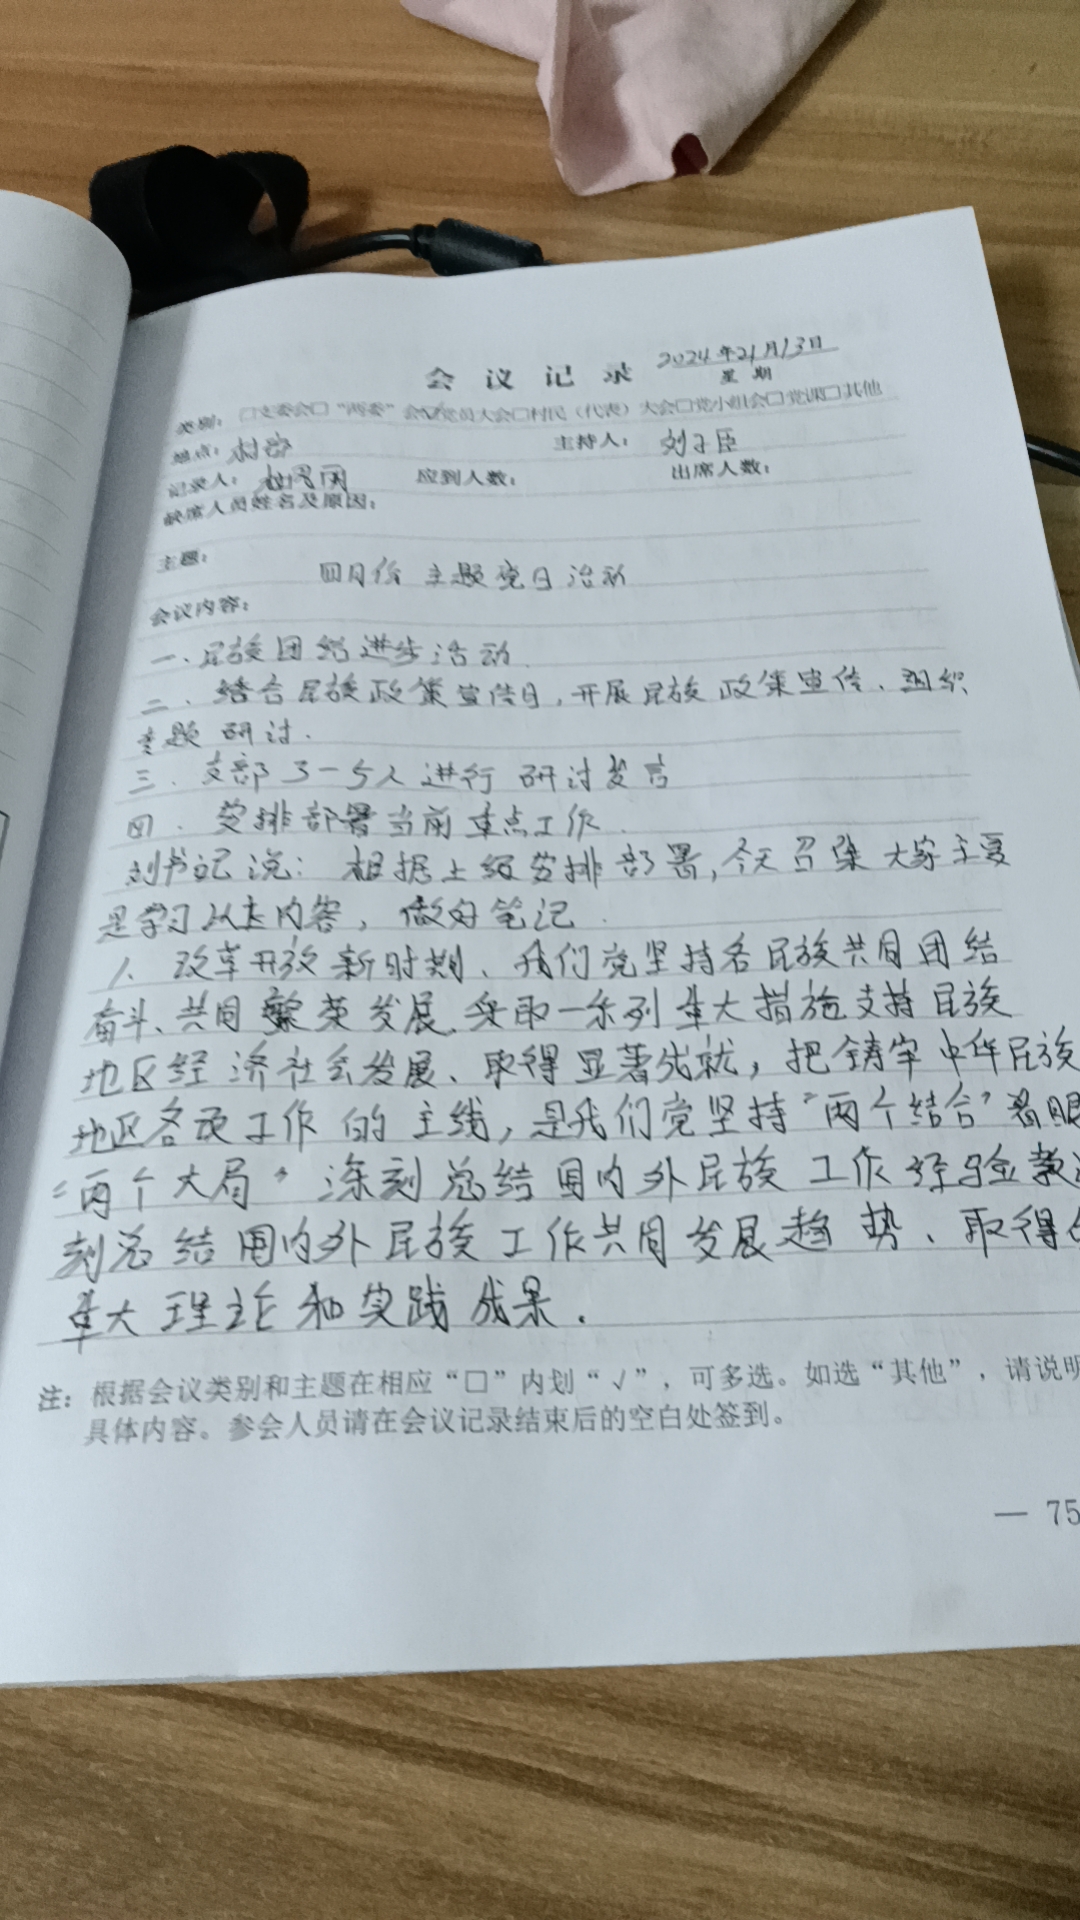 会议记录 2024年4月13日
星期
类别：□支委会□“两委”会☑党员大会□村民（代表）大会□党小组会□党课□其他
地点：村部 主持人：刘子臣
记录人： 应到人数： 出席人数：
缺席人员姓名及原因：
主题：
四月份主题党日活动
会议内容：
一、民族团结进步活动.
二、结合民族政策宣传日，开展民族政策宣传、组织
专题研讨.
三、支部3-5人进行研讨发言
四、安排部署当前重点工作.
刘书记说：根据上级安排部署，今天召集大家主要
是学习以上内容，做好笔记.
1、改革开放新时期、我们党坚持各民族共同团结
奋斗、共同繁荣发展、采取一系列重大措施支持民族
地区经济社会发展、取得显著成就，把铸牢中华民族
地区各项工作的主线，是我们党坚持“两个结合”着眼
“两个大局”深刻总结国内外民族工作经验教
刻总结国内外民族工作共同发展趋势、取得
重大理论和实践成果.
注：根据会议类别和主题在相应“□”内划“√”，可多选。如选“其他”，请说明
具体内容。参会人员请在会议记录结束后的空白处签到。
— 75